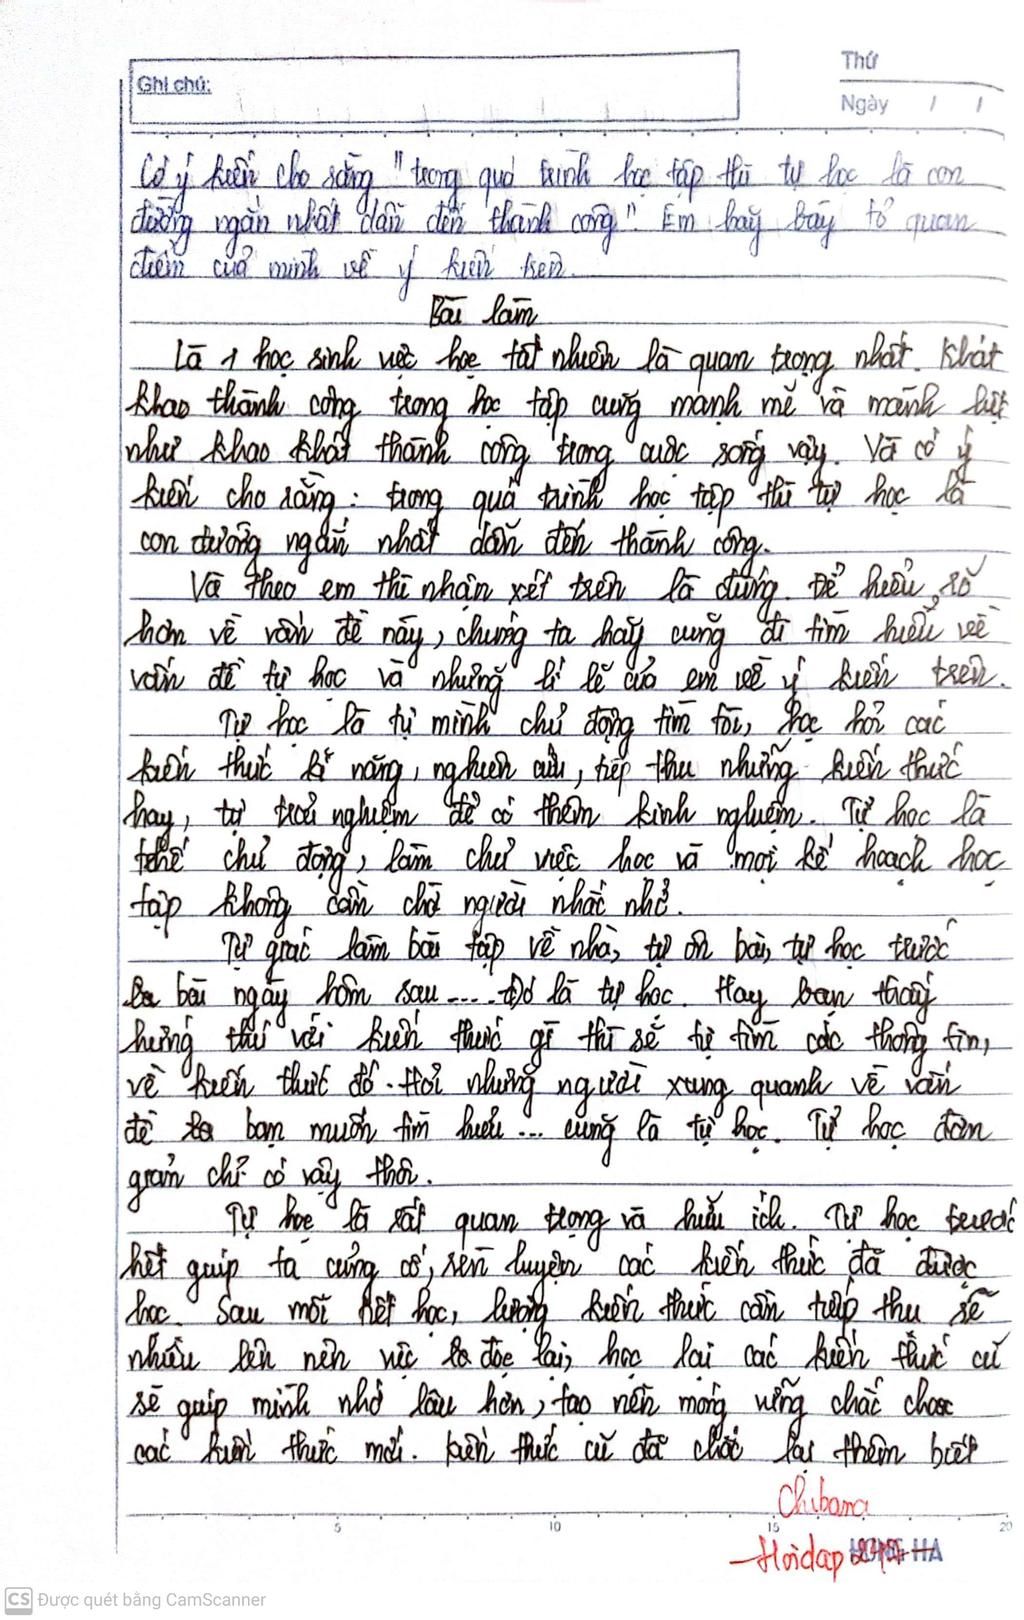 Ghi chú:
Thứ
Ngày / /
Có ý kiến cho rằng "trong quá trình học tập thì tự học là con
đường ngắn nhất dẫn đến thành công". Em hãy bày tỏ quan
điểm của mình về ý kiến trên.
Bài làm
Là 1 học sinh việc học tất nhiên là quan trọng nhất. Khát
khao thành công trong học tập cũng mạnh mẽ và mãnh liệt
như khao khát thành công trong cuộc sống vậy. Và có ý
kiến cho rằng: trong quá trình học tập thì tự học là
con đường ngắn nhất dẫn đến thành công.
Và theo em thì nhận xét trên là đúng. Để hiểu rõ
hơn về vấn đề này, chúng ta hãy cùng đi tìm hiểu về
vấn đề tự học và những lí lẽ của em về ý kiến trên.
Tự học là tự mình chủ động tìm tòi, học hỏi các
kiến thức kĩ năng, nghiên cứu, tiếp thu những kiến thức
hay, tự trải nghiệm để có thêm kinh nghiệm. Tự học là
thế chủ động, làm chủ việc học và mọi kế hoạch học
tập không cần chờ người nhắc nhở.
Tự giác làm bài tập về nhà, tự ôn bài, tự học trước
bài ngày hôm sau .... Đó là tự học. Hay bạn thấy
hứng thú với kiến thức gì thì sẽ tự tìm các thông tin,
về kiến thức đó. Hỏi những người xung quanh về vấn
đề bạn muốn tìm hiểu ... cũng là tự học. Tự học đơn
giản chỉ có vậy thôi.
Tự học là rất quan trọng và hữu ích. Tự học trước
hết giúp ta củng cố, rèn luyện các kiến thức đã được
học. Sau mỗi tiết học, lượng kiến thức cần tiếp thu sẽ
nhiều lên nên việc đọc lại, học lại các kiến thức cũ
sẽ giúp mình nhớ lâu hơn, tạo nên móng vững chắc cho
các kiến thức mới. Kiến thức cũ đã chắc lại thêm biết
Chibana
5 10 15 20
Hoidap247
HỒNG HÀ
CS Được quét bằng CamScanner